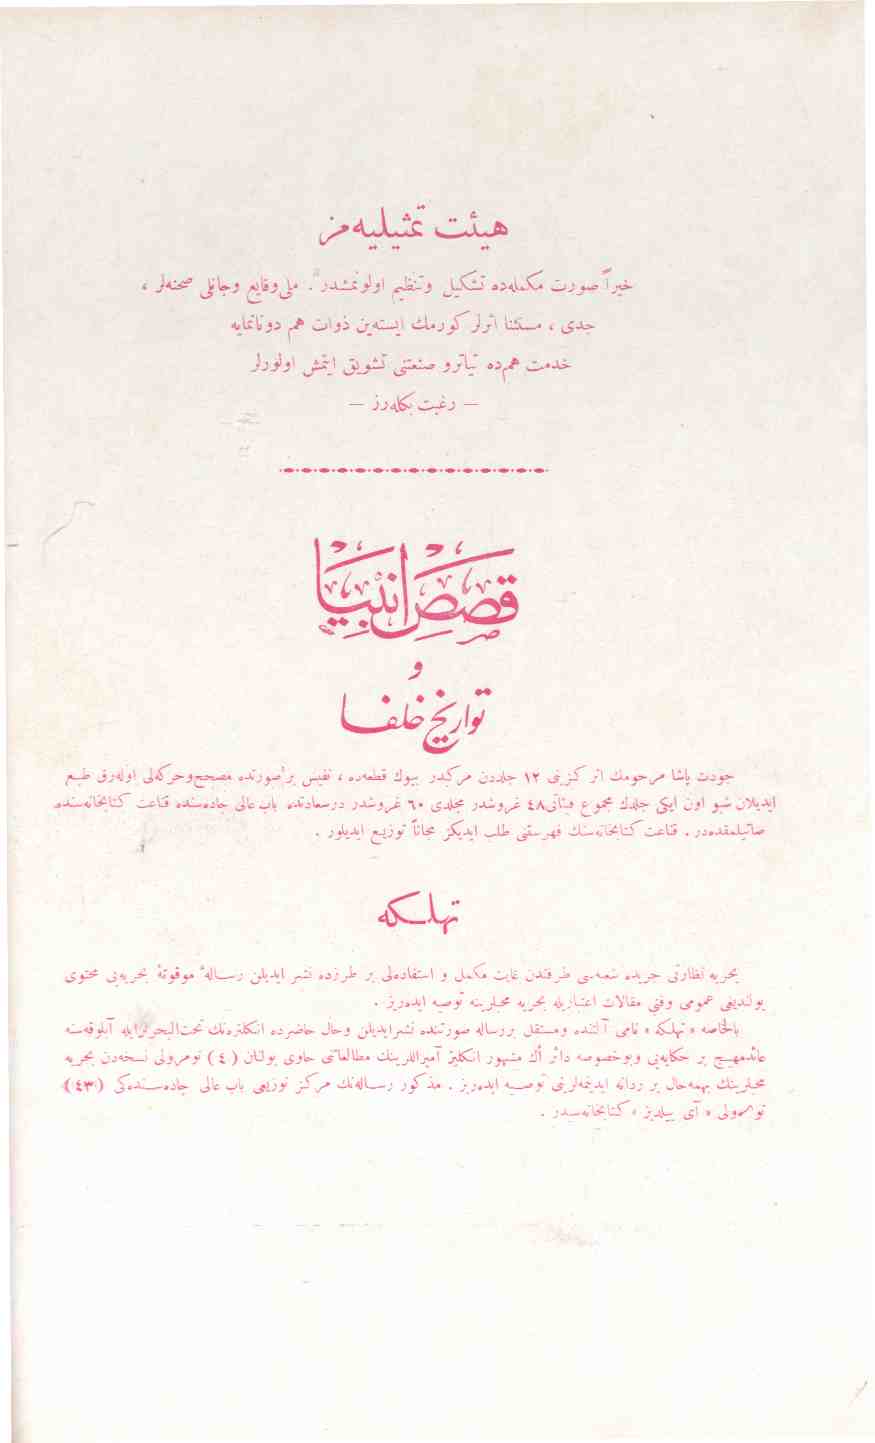 هیئت تمثیلیه‌مز
خیراً صورت مکمله‌ده تشکیل وتنظیم اولونمشدر. ملی وقایع وجانلی صحنه‌لر ،
جدی ، مستثنا اثرلر کورمك ایسته‌ین ذوات هم دونانمایه
خدمت هم‌ده تیاترو صنعتنی تشویق ایتمش اولورلر
— رغبت بکله‌رز —
قصص انبیا
و
تواریخ خلفا
جودت پاشا مرحومك اثر کزینی ١٢ جلددن مرکبدر بیوك قطعه‌ده ، نفیس بر صورتده مصحح‌وحرکه‌لی اوله‌رق طبع
ایدیلان شبو اون ایکی جلدك مجموع فیئاتی ٤٨ غروشدر مجلدی ٦٠ غروشدر درسعادتده باب عالی جاده‌سنده قناعت کتابخانه‌سنده
صاتیلمقده‌در . قناعت کتابخانه‌سنك فهرستنی طلب ایدیکز مجاناً توزیع ایدیلور .
تهلکه
بحریه نظارتی جریده شعبه‌سی طرفندن غایت مکمل و استفاده‌لی بر طرزده نشر ایدیلن رساله‌ٔ موقوتهٔ بحریه‌یی محتوی
بولندیغی عمومی وفنی مقالات اعتباریله بحریه محبلرینه توصیه ایده‌ریز .
بالخاصه « تهلکه » نامی آلتنده ومستقل بررساله صورتنده نشرایدیلن وحال حاضرده انکلتره‌نك تحت‌البحرلرایله آبلوقه‌سنه
عائدمهیج بر حکایه‌یی وبوخصوصه دائر أك مشهور انکلیز آمیراللرینك مطالعاتنی حاوی بولنان ( ٤ ) نومرولی نسخه‌دن بحریه
محبلرینك بهمه‌حال بر ردانه ایدینمه‌لرینی توصیه ایده‌ریز . مذکور رساله‌نك مرکز توزیعی باب عالی جاده‌سنده‌کی (٤٣)
نومرولی « آی ییلدیز » کتابخانه‌سیدر .